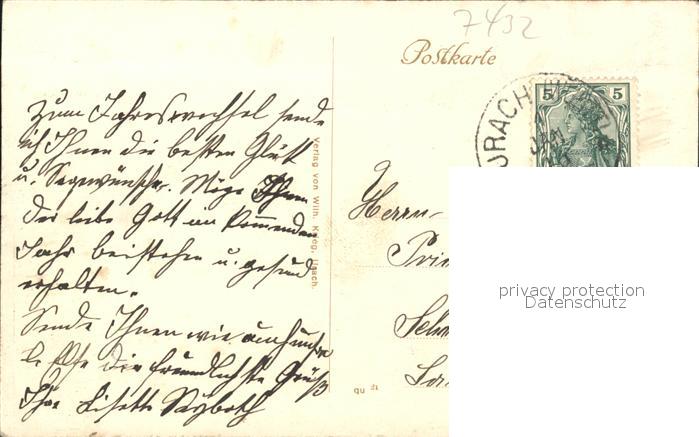 7432
Postkarte
5 5
URACH
Zum Jahreswechsel sende
ich Ihnen die besten Glück
u. Segenwünsche. Möge Ihnen
der liebe Gott im kommenden
Jahr beistehen u. gesund
erhalten.
Sende Ihnen wie
die freundlichste Grüß
Ihre Lisette Seyboth
Verlag von Wilh. Urach.
Herrn
qu
privacy protection
Datenschutz